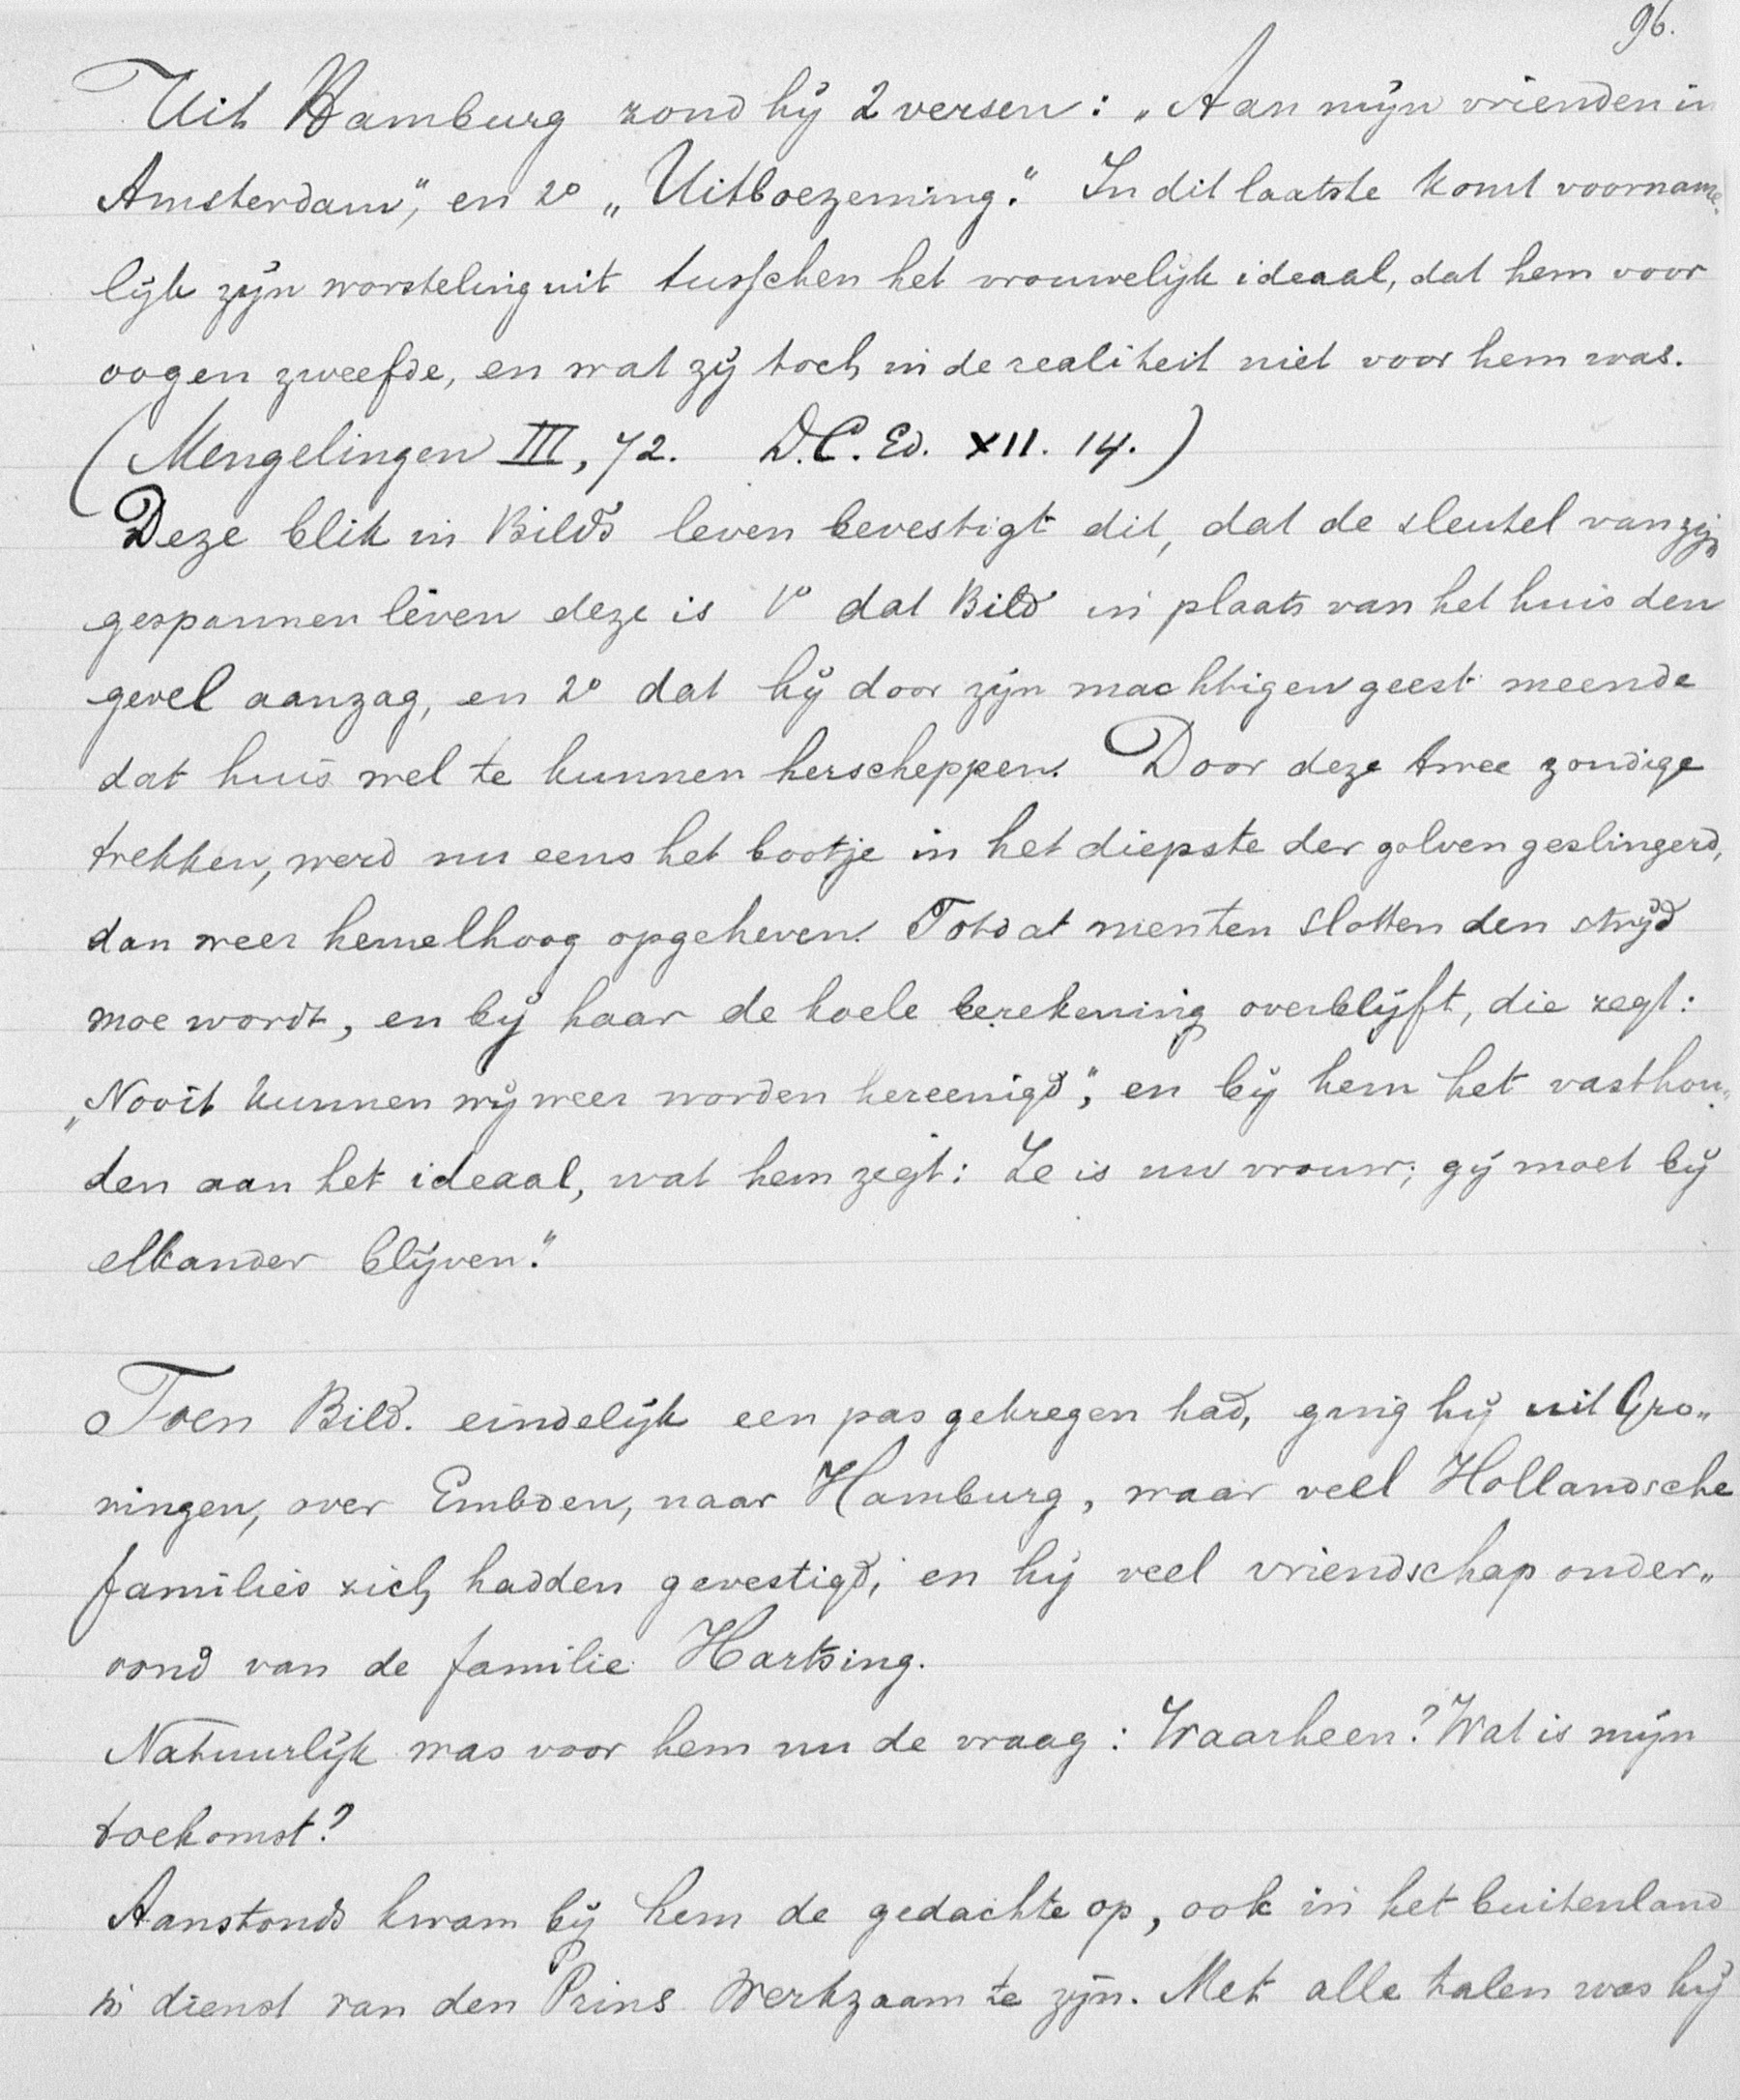 96.
Uit Hamburg zond hij 2 versen: „Aan mijn vrienden in
Amsterdam", en 2° „Uitboezeming." In dit laatste komt voorname„
lijk zijn worsteling uit tusschen het vrouwelijk ideaal, dat hem voor
oogen zweefde, en wat zij toch in de realiteit niet voor hem was.
(Mengelingen III, 72. D.C. Ed. XII. 14.)
Deze blik in Bild's leven bevestigt dit, dat de sleutel van zijn
gespannen leven deze is 1° dat Bild in plaats van het huis den
gevel aanzag, en 2° dat hij door zijn machtigen geest meende
dat huis wel te kunnen herscheppen. Door deze twee zondige
trekken, werd nu eens het bootje in het diepste der golven geslingerd,
dan weer hemelhoog opgeheven. Totdat men ten slotte den strijd
moe wordt, en bij haar de koele berekening overblijft, die zegt:
„Nooit kunnen wij weer worden hereenigd", en bij hem het vasthou„
den aan het ideaal, wat hem zegt: Ze is uw vrouw; gij moet bij
elkander blijven."
Toen Bild. eindelijk een pas gekregen had, ging hij uit Gro„
ningen, over Embden, naar Hamburg, waar veel Hollandsche
families zich hadden gevestigd, en hij veel vriendschap onder„
vond van de familie Hartsing.
Natuurlijk was voor hem nu de vraag: Waarheen? Wat is mijn
toekomst?
Aanstonds kwam bij hem de gedachte op, ook in het buitenland
in dienst van den Prins werkzaam te zijn. Met alle talen was hij